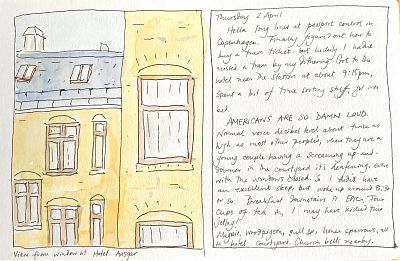 Thursday 2 April
Hella long lines at passport control in
Copenhagen. Finally figured out how to
buy a train ticket but luckily I hadn't
missed a train by my dithering. Got to the
hotel near the station at about 9:15pm,
Spent a bit of time sorting stuff, got into
bed.
AMERICANS ARE SO DAMN LOUD.
Normal voice decibel level about twice as
high as most other peoples, when they are a
young couple having a screaming up-and-
downer in the courtyard it's deafening, even
with the windows closed. So I didn't have
an excellent sleep but woke up around 8:30
or so. Breakfast downstairs is
cups of tea in, I may have kicked this
jetlag!
Magpie, woodpigeon, gull sp., house sparrows, all
in hotel courtyard. Church bells nearby.
View from window at Hotel Ansgar